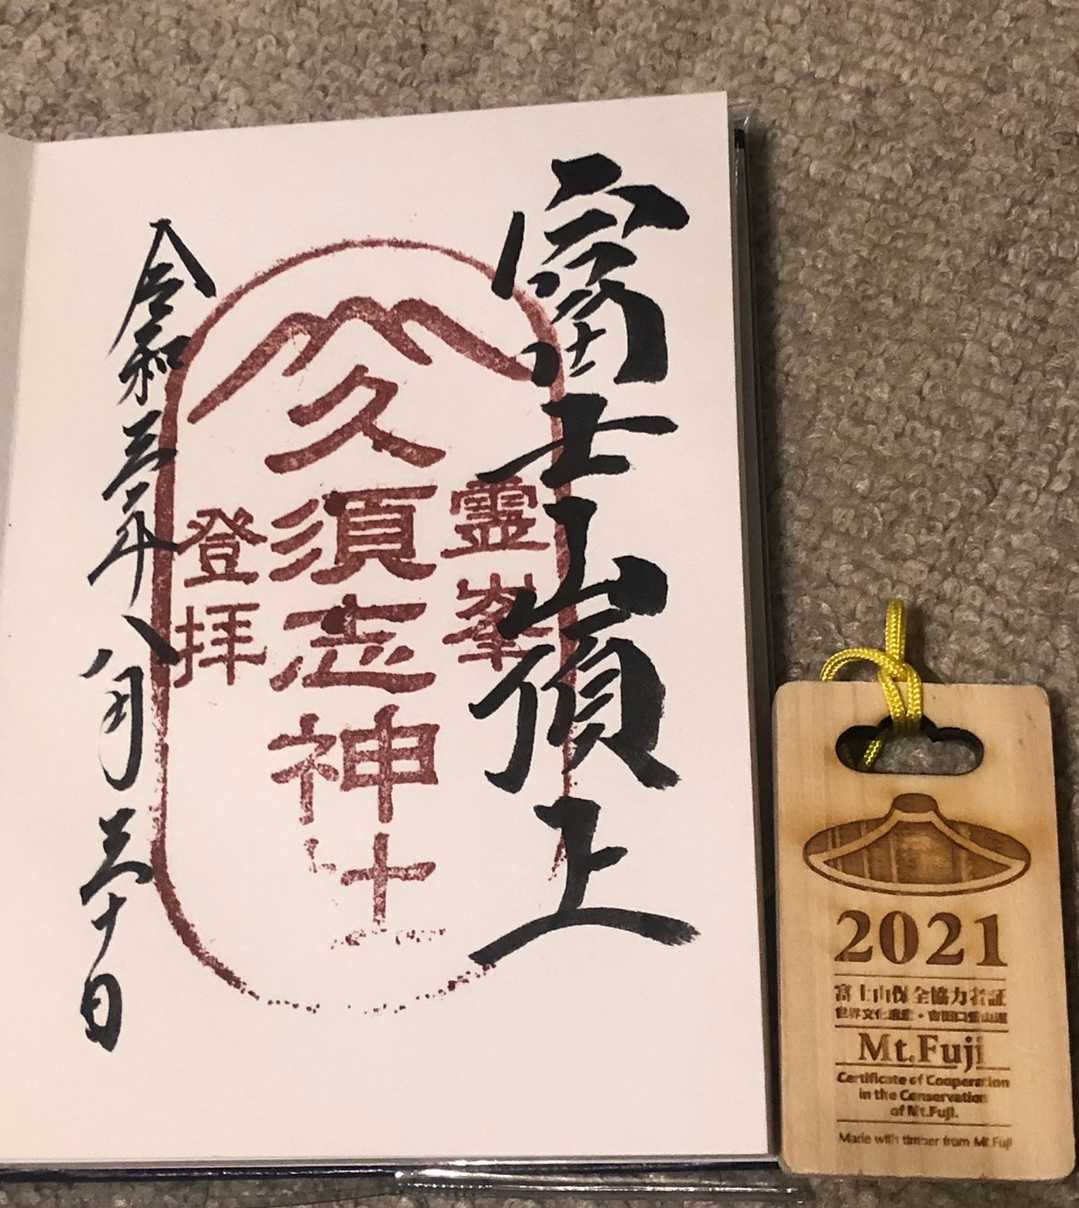 富士山頂上
霊峯
久須志神社
登拝
令和三年八月三十日
2021
富士山保全協力者証
世界文化遺産・吉田口登山道
Mt.Fuji
Certificate of Cooperation
in the Conservation
of Mt.Fuji.
Made with timber from Mt.Fuji